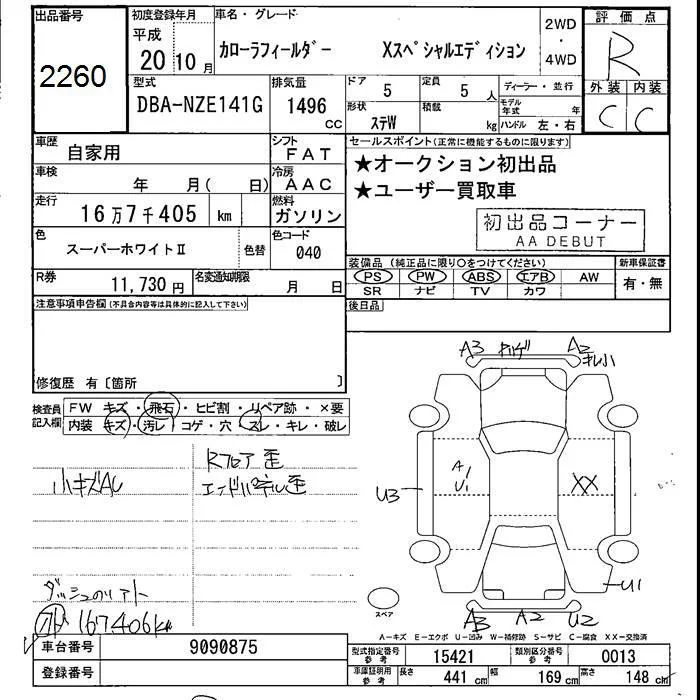 出品番号
2260
初度登録年月
平成
20 10 月
車名・グレード
カローラフィールダー Xスペシャルエディション
2WD
・
4WD
評価点
R
外装 内装
C C
型式
DBA-NZE141G
排気量
1496
CC
ドア
5
定員
5 人
形状
ステW
積載
kg
ディーラー・並行
モデル年式
年
ハンドル 左・右
車歴
自家用
シフト
FAT
車検
年 月( 日)
冷房
AAC
走行
16万7千405 km
燃料
ガソリン
色
スーパーホワイトⅡ
色替
色コード
040
R券
11,730 円
名変通知期限
月 日
セールスポイント(正常に機能するものに限ります)
★オークション初出品
★ユーザー買取車
初出品コーナー
AA DEBUT
装備品(純正品に限り○をつけてください)
PS PW ABS エアB AW
SR ナビ TV カワ
新車保証書
有・無
後日品
注意事項申告欄(不具合内容等は具体的に記入して下さい)
修復歴 有〔箇所 〕
検査員記入欄
FW キズ・飛石・ヒビ割・リペア跡・×要
内装 キズ・汚レ・コゲ・穴・スレ・キレ・破レ
小キズAU
Rフロア歪
エンドパネル歪
167406km
A3
A2
キレ小
A
U1
XX
U3
U1
A3 A2 U2
スペア
A-キズ E-エクボ U-凹み W-補修跡 S-サビ C-腐食 XX-交換済
車台番号
9090875
登録番号
型式指定番号
参考
15421
類別区分番号
参考
0013
車庫証明用
参考
長さ
441 cm
幅
169 cm
高さ
148 cm